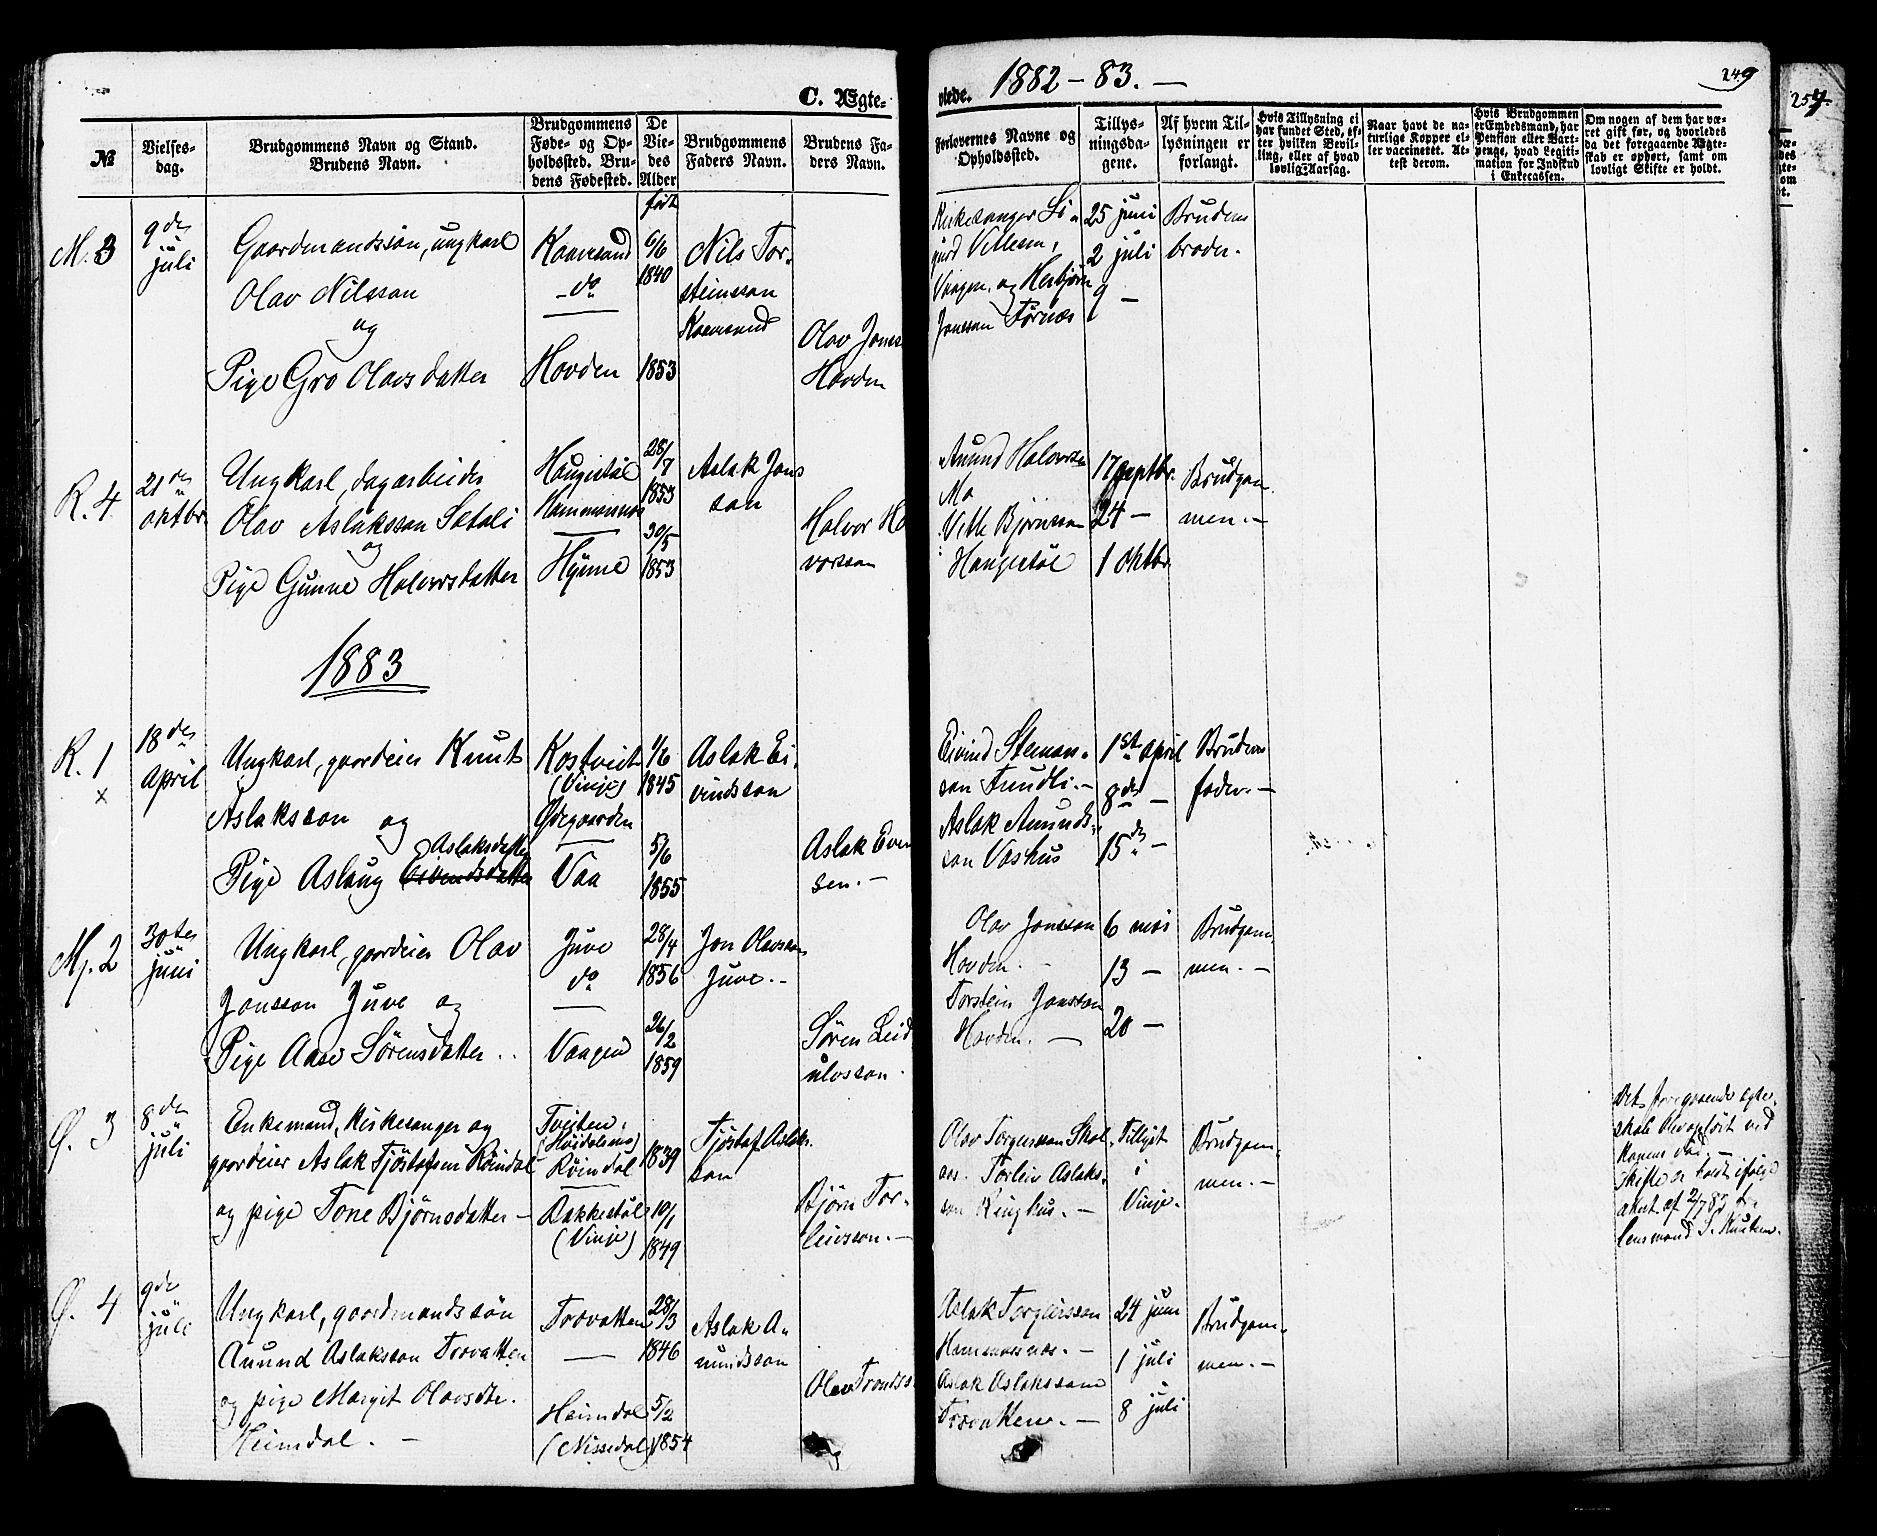 C. Ægte-
viede. 1882-83. -
249
257
№
Vielses-
dag.
Brudgommens Navn og Stand.
Brudens Navn.
Brudgommens
Føde- og Op-
holdssted. Bru-
dens Fødested.
De
Vie-
des
Alder
Brudgommens
Faders Navn.
Brudens Fa-
ders Navn.
Forlovernes Navne og
Opholdssted.
Tillys-
ningsda-
gene.
Af hvem Til-
lysningen er
forlangt.
Hvis Tillysning ei
har fundet Sted, ef-
ter hvilken Bevil-
ling, eller af hvad
lovlig Aarsag.
Naar havt de na-
turlige Kopper el-
ler vaccineret. At-
test derom.
Hvis Brudgommen
er Embedsmand, har
Pension eller Vart-
penge, hvad Legiti-
mation for Indskud
i Enkecassen.
Om nogen af dem har væ-
ret gift før, og hvorledes
da det foregaaende Ægte-
skab er ophørt, samt om
lovligt Skifte er holdt.
M. 3
9de
juli
Gaardmandssøn, ungkarl
Olav Nilsson
og
Pige Gro Olavsdatter
Kaavesand
- do
Hovden
født
6/6
1840
1853
Nils Tor-
steinsson
Kaavesand
Olav Jons
Hovden
Kirkesanger Si-
gurd Villesen,
Vaagen, og Herbjørn
Jonsson Førnæs
25 juni
2 juli
9 -
Brudens
broder.
R. 4
21de
oktbr
Ungkarl, dagarbeider
Olav Aslaksson Sætali
og
Pige Gunne Halvorsdatter
Haugestøl
Hammarsnæs
Hynne
28/7
1853
30/5
1853
Aslak Jons
son
Halvor H
vorsson
Aanund Halvorsen
Mo
Vetle Bjørnsson
Haugestøl
17 septbr.
24 -
1 oktbr.
Brudgom-
men. -
1883
R. 1
x
18de
April
Ungkarl, gaardeier Knut
Aslaksson og
Aslaksdatter
Pige Aslaug Eivindsdatter
Kostveit
(Vinje)
Ødegaarden
Vaa
1/6
1845
5/6
1855
Aslak Ei-
vindsson
Aslak Even
sen. -
Eivind Steman-
son Fundli. -
Aslak Aamunds-
son Vashus
1st April
8de -
15de -
Brudens
fader. -
Mj. 2
30te
juni
Ungkarl, gaardeier Olav
Jonsson Juve og
Pige Aase Sørensdatter
Juve
do
Vaagen
28/4
1856
26/2
1859
Jon Olavsson
Juve. -
Søren Leid
ulvsson.
Olav Jonsson
Hovden. -
Torstein Jonsson
Hovden. -
6 mai
13 -
20 -
Brudgom-
men. -
Ø. 3
8de
juli
Enkemand, kirkesanger og
gaardeier Aslak Tjøstofsen Røindal
og pige Tone Bjørnsdatter -
Tveiten,
(Høidalsmo)
Røindal
Bakkestøl
(Vinje)
1839
10/1
1849
Tjøstof Aslaks-
son
Bjørn Tor-
leivsson. -
Olav Torgersson Skol-
aas. Torleiv Aslaks-
son Kinghus. -
Tillyst
i
Vinje.
Brudgom-
men. -
Det foregaaende ægte-
skab er opløst ved
konens død. -
Skifte er holdt ifølge
akst af 2/7 83 fra
lensmand S. Knutsen.
Ø. 4
9de
juli
Ungkarl, gaardmandssøn
Aanund Aslaksson Trovatten
og pige Margit Olavsdtr.
Heimdal. -
Trovatten
Heimdal
(Nissedal)
28/3
1846
5/2
1854
Aslak A-
nundsson
Olav Tronds
Aslak Torgeirsson
Hammersnæs. -
Aslak Aslaksson
Trovatten. -
24 juni
1 juli
8 juli
Brudgom-
men. -